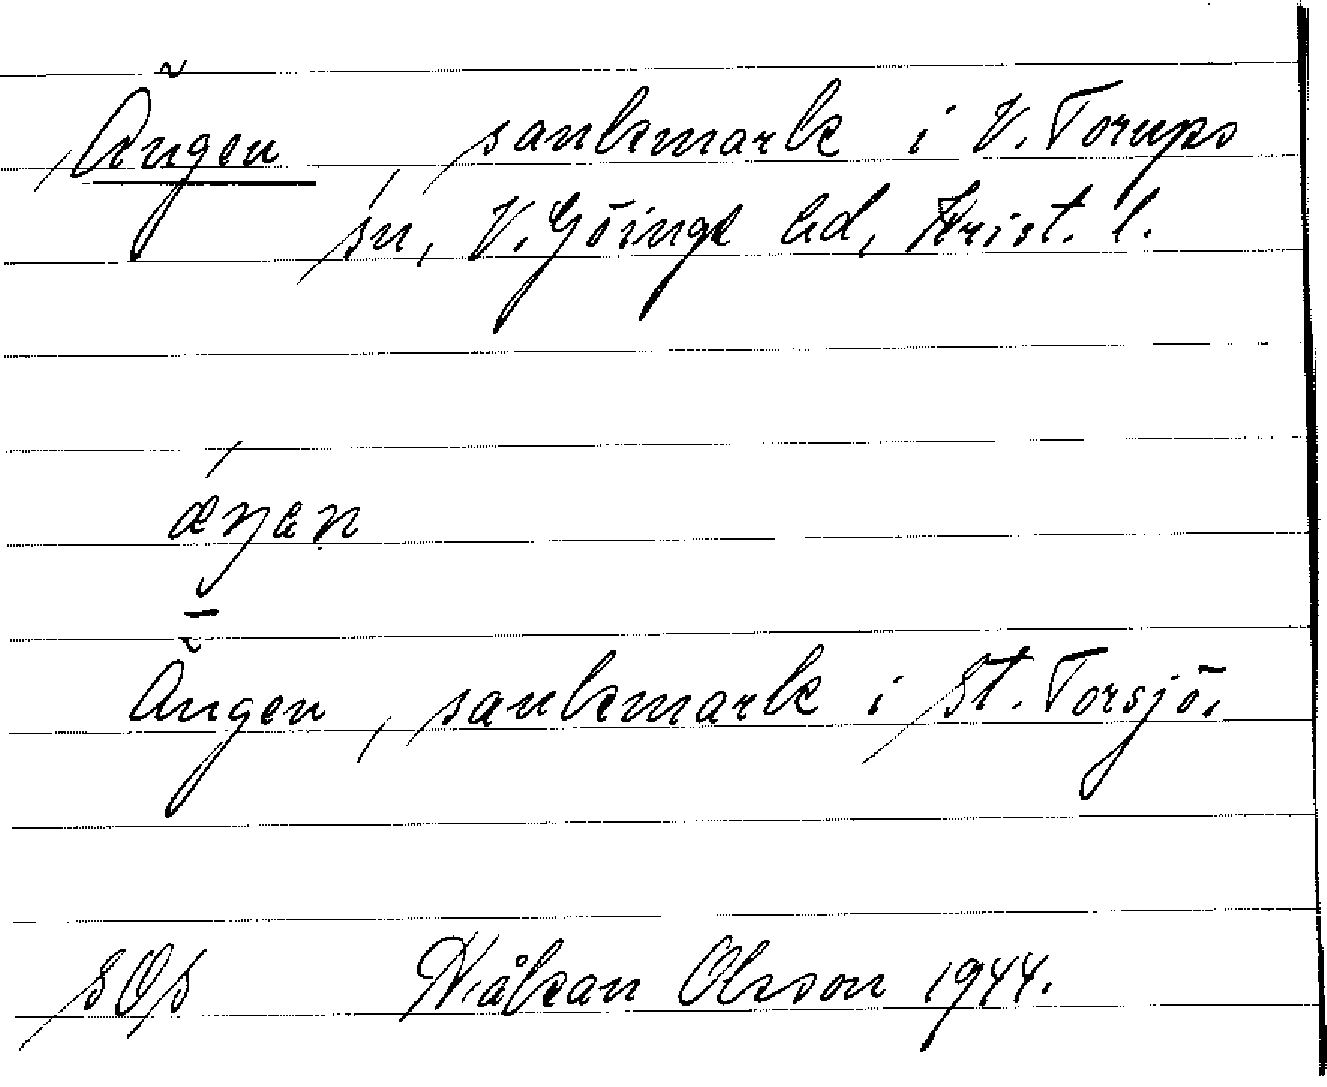 Ängen, sankmark i V. Torups
sn, V. Göinge hd, Krist. l.
æŋεn
Ängen, sankmark i St. Torsjö.
SOS Håkan Olsson 1944.